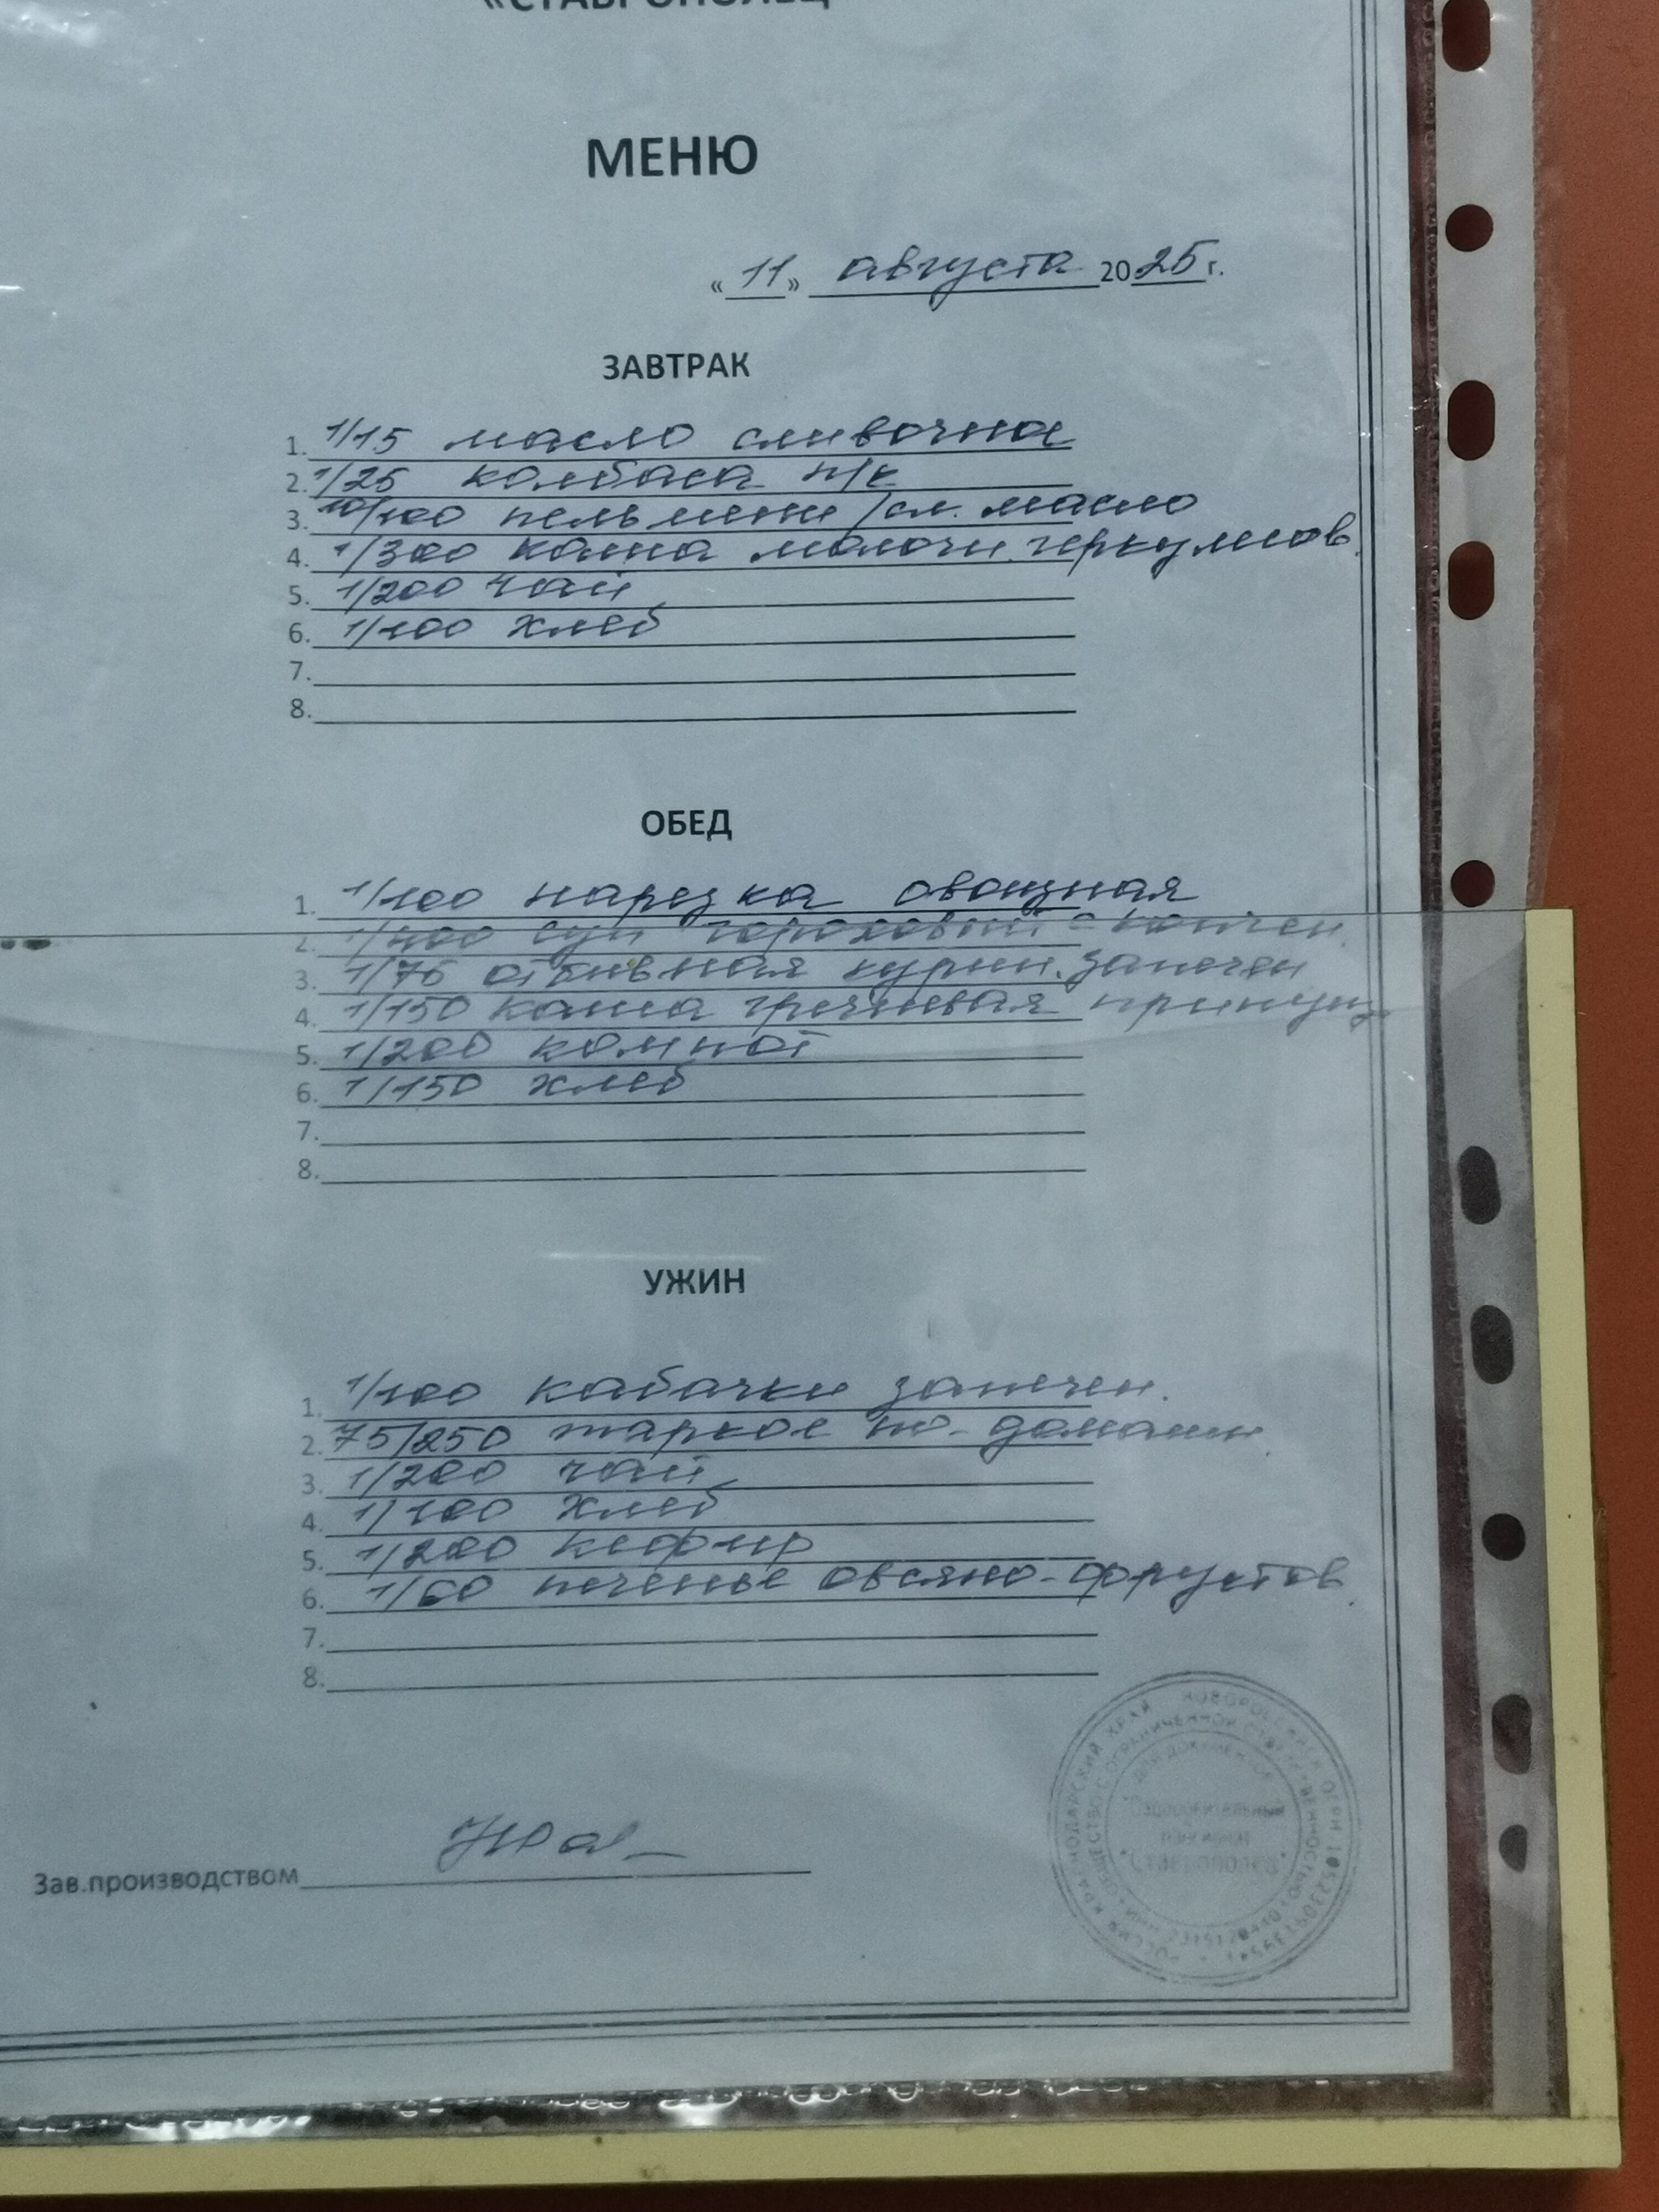 «СТАВРОПОЛЕЦ
МЕНЮ
«11» августа 2025 г.
ЗАВТРАК
1. 1/15 масло сливочное
2. 1/25 колбаса п/к
3. 10/100 пельмени /сл. масло
4. 1/300 каша молочн. геркулесов.
5. 1/200 чай
6. 1/100 хлеб
7.
8.
ОБЕД
1. 1/100 нарезка овощная
2. 1/400 суп гороховый с копчен.
3. 1/75 отбивная курин. запечен
4. 1/150 каша гречневая припущ.
5. 1/200 компот
6. 1/150 хлеб
7.
8.
УЖИН
1. 1/100 кабачки запечен.
2. 75/250 жаркое по-домашн
3. 1/200 чай
4. 1/100 хлеб
5. 1/200 кефир
6. 1/60 печенье овсяно-фруктов.
7.
8.
Зав.производством
РОССИЯ КРАСНОДАРСКИЙ КРАЙ НОВОРОССИЙСК ОГРН
ОБЩЕСТВО С ОГРАНИЧЕННОЙ ОТВЕТСТВЕННОСТЬЮ
ДЛЯ ДОКУМЕНТОВ
ОЗДОРОВИТЕЛЬНЫЙ
СТАВРОПОЛЕЦ